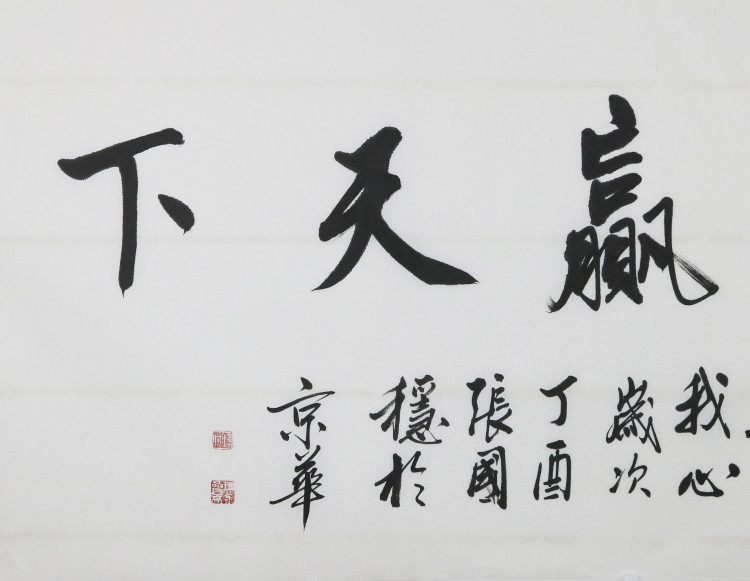 赢天下
我心
歲次
丁酉
張國
穩於
京華